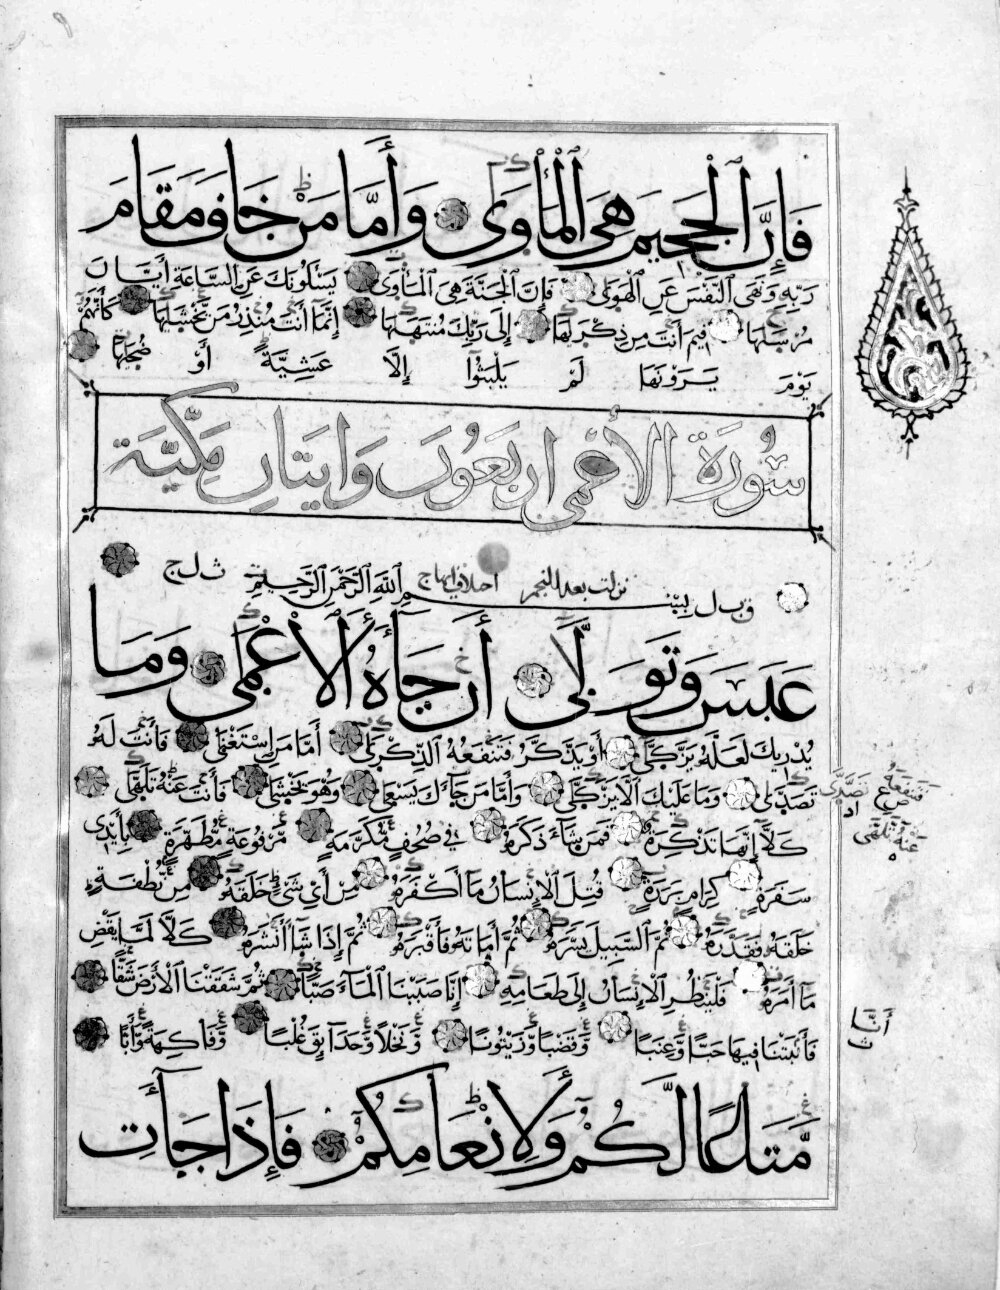 فَإِنَّ الْجَحِيمَ هِيَ الْمَأْوَى وَأَمَّا مَنْ خَافَ مَقَامَ
رَبِّهِ وَنَهَى النَّفْسَ عَنِ الْهَوَى فَإِنَّ الْجَنَّةَ هِيَ الْمَأْوَى يَسْـَٔلُونَكَ عَنِ السَّاعَةِ أَيَّانَ
مُرْسَىٰهَا فِيمَ أَنتَ مِن ذِكْرَىٰهَا إِلَى رَبِّكَ مُنتَهَىٰهَا إِنَّمَا أَنتَ مُنذِرُ مَن يَخْشَىٰهَا كَأَنَّهُمْ
يَوْمَ يَرَوْنَهَا لَمْ يَلْبَثُوا إِلَّا عَشِيَّةً أَوْ ضُحَىٰهَا
سُورَةُ الأَعْمَى اربَعُونَ وَايَتَانِ مَكِّيَّة
نزلت بعد النجم
بِسْمِ اللَّهِ الرَّحْمَٰنِ الرَّحِيمِ
عَبَسَ وَتَوَلَّى أَن جَاءَهُ الْأَعْمَى وَمَا
يُدْرِيكَ لَعَلَّهُ يَزَّكَّى أَوْ يَذَّكَّرُ فَتَنفَعَهُ الذِّكْرَى أَمَّا مَنِ اسْتَغْنَى فَأَنتَ لَهُ
تَصَدَّى وَمَا عَلَيْكَ أَلَّا يَزَّكَّى وَأَمَّا مَن جَاءَكَ يَسْعَى وَهُوَ يَخْشَى فَأَنتَ عَنْهُ تَلَهَّى
كَلَّا إِنَّهَا تَذْكِرَةٌ فَمَن شَاءَ ذَكَرَهُ فِي صُحُفٍ مُّكَرَّمَةٍ مَّرْفُوعَةٍ مُّطَهَّرَةٍ بِأَيْدِي
سَفَرَةٍ كِرَامٍ بَرَرَةٍ قُتِلَ الْإِنسَانُ مَا أَكْفَرَهُ مِنْ أَيِّ شَيْءٍ خَلَقَهُ مِن نُّطْفَةٍ
خَلَقَهُ فَقَدَّرَهُ ثُمَّ السَّبِيلَ يَسَّرَهُ ثُمَّ أَمَاتَهُ فَأَقْبَرَهُ ثُمَّ إِذَا شَاءَ أَنشَرَهُ كَلَّا لَمَّا يَقْضِ
مَا أَمَرَهُ فَلْيَنظُرِ الْإِنسَانُ إِلَى طَعَامِهِ إِنَّا صَبَبْنَا الْمَاءَ صَبًّا ثُمَّ شَقَقْنَا الْأَرْضَ شَقًّا
فَأَنبَتْنَا فِيهَا حَبًّا وَعِنَبًا وَقَضْبًا وَزَيْتُونًا وَنَخْلًا وَحَدَائِقَ غُلْبًا وَفَاكِهَةً وَأَبًّا
مَّتَاعًا لَّكُمْ وَلِأَنْعَامِكُمْ فَإِذَا جَاءَتِ
فَتَنفَعُهُ
تَصَّدَّى
عَنْهُ تَلَهَّى
أَنَّا